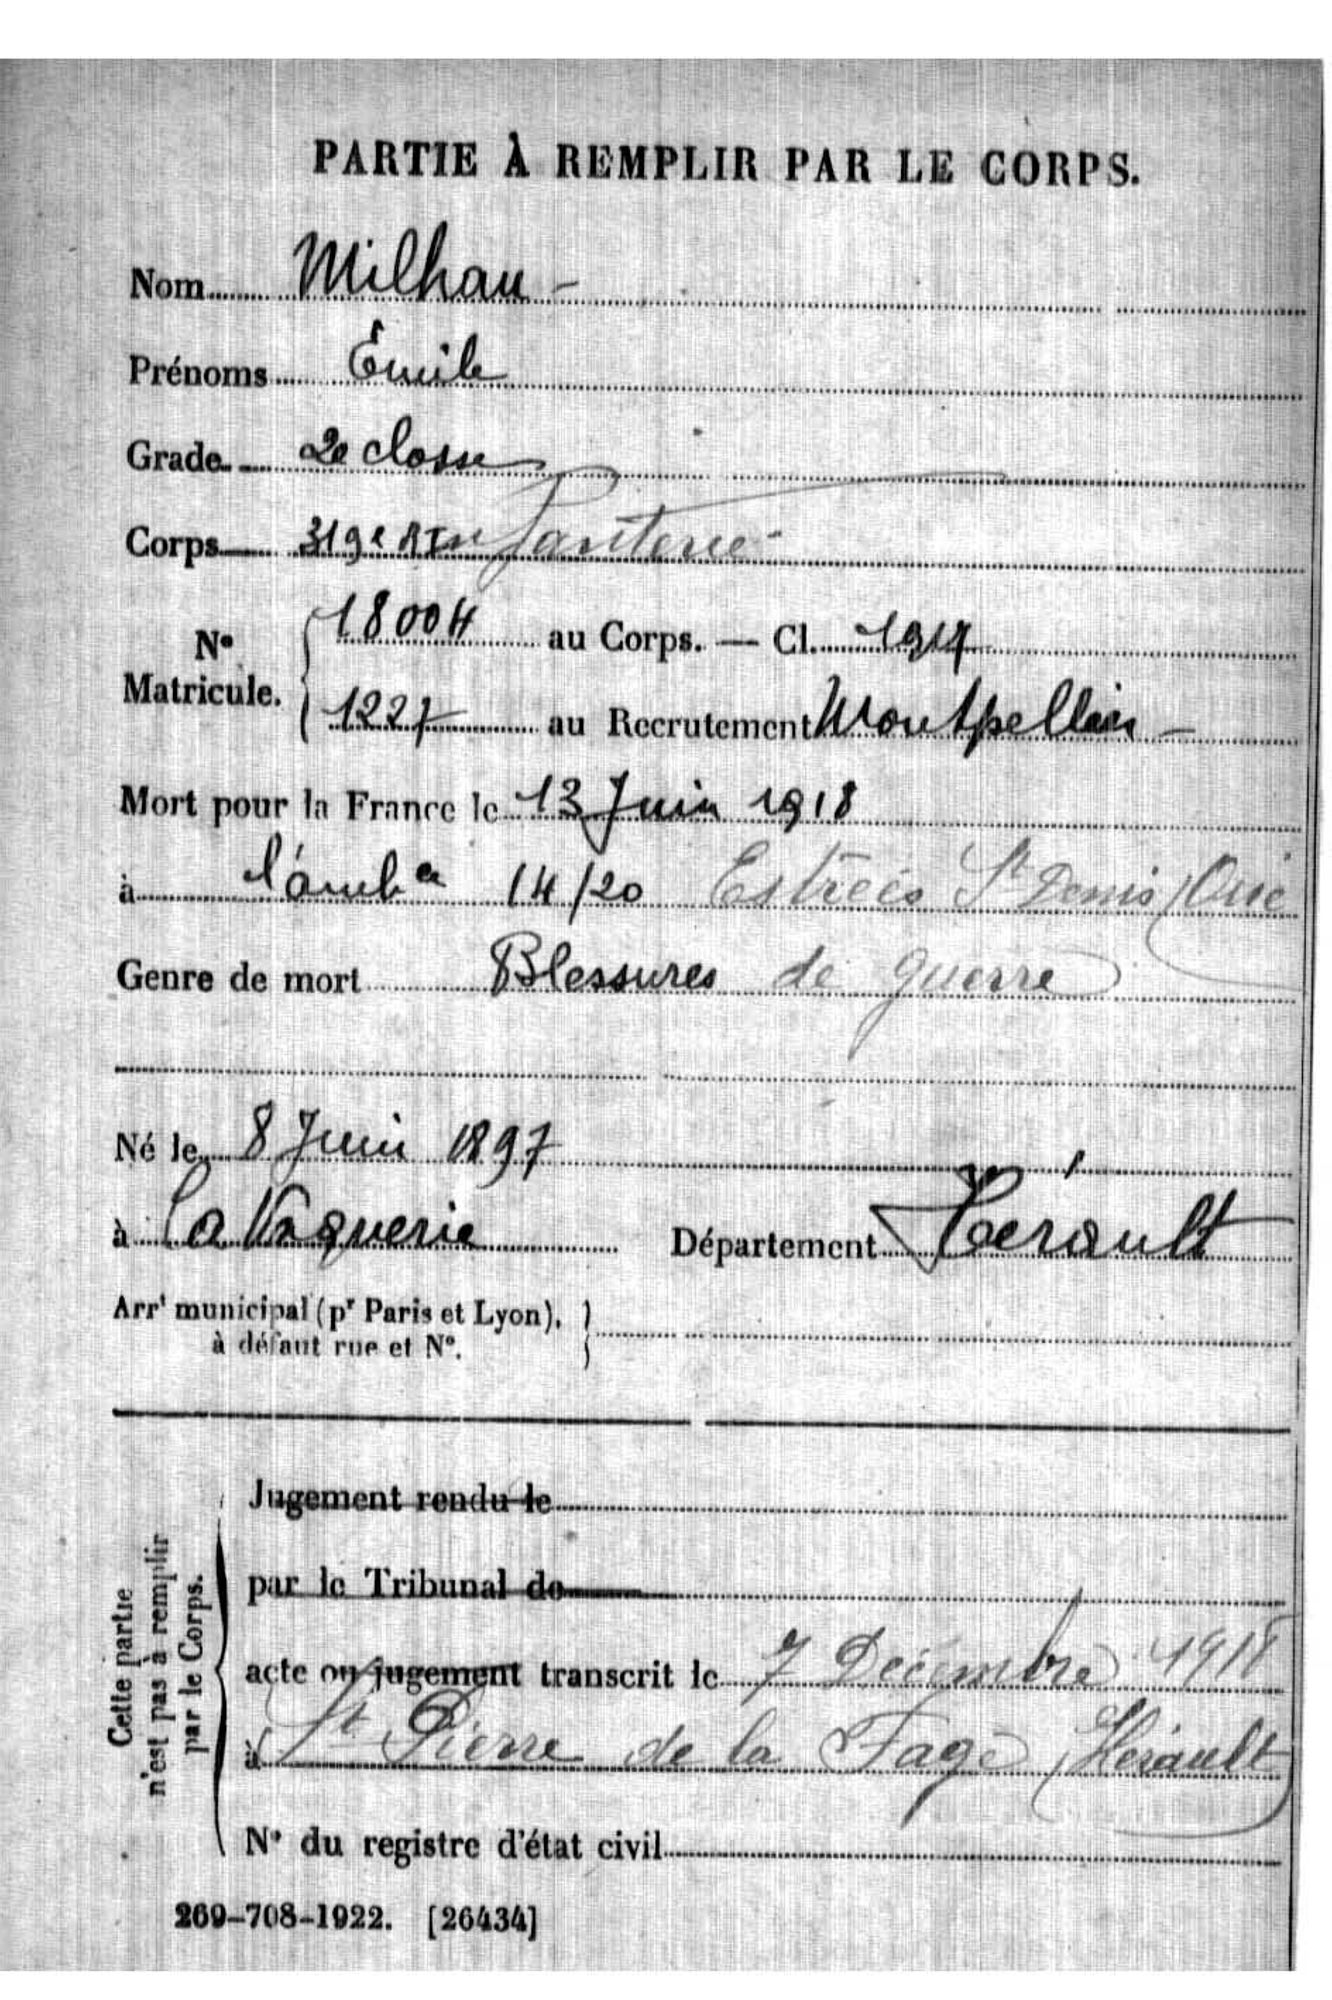 PARTIE À REMPLIR PAR LE CORPS.
Nom Milhau -
Prénoms Émile
Grade 2e classe
Corps 319e RInfanterie
N° Matricule. 18004 au Corps. — Cl. 1917
1227 au Recrutement Montpellier -
Mort pour la France le 13 Juin 1918
à l'ambce 14/20 Estrées St Denis (Oise
Genre de mort Blessures de guerre
Né le 8 Juin 1897
à La Vaquerie Département Hérault
Arrt municipal (pr Paris et Lyon),
à défaut rue et N°.
Cette partie
n'est pas à remplir
par le Corps.
Jugement rendu le
par le Tribunal de
acte ou jugement transcrit le 7 Décembre 1918
à St Pierre de la Fage (Hérault)
N° du registre d'état civil
269-708-1922. [26434]